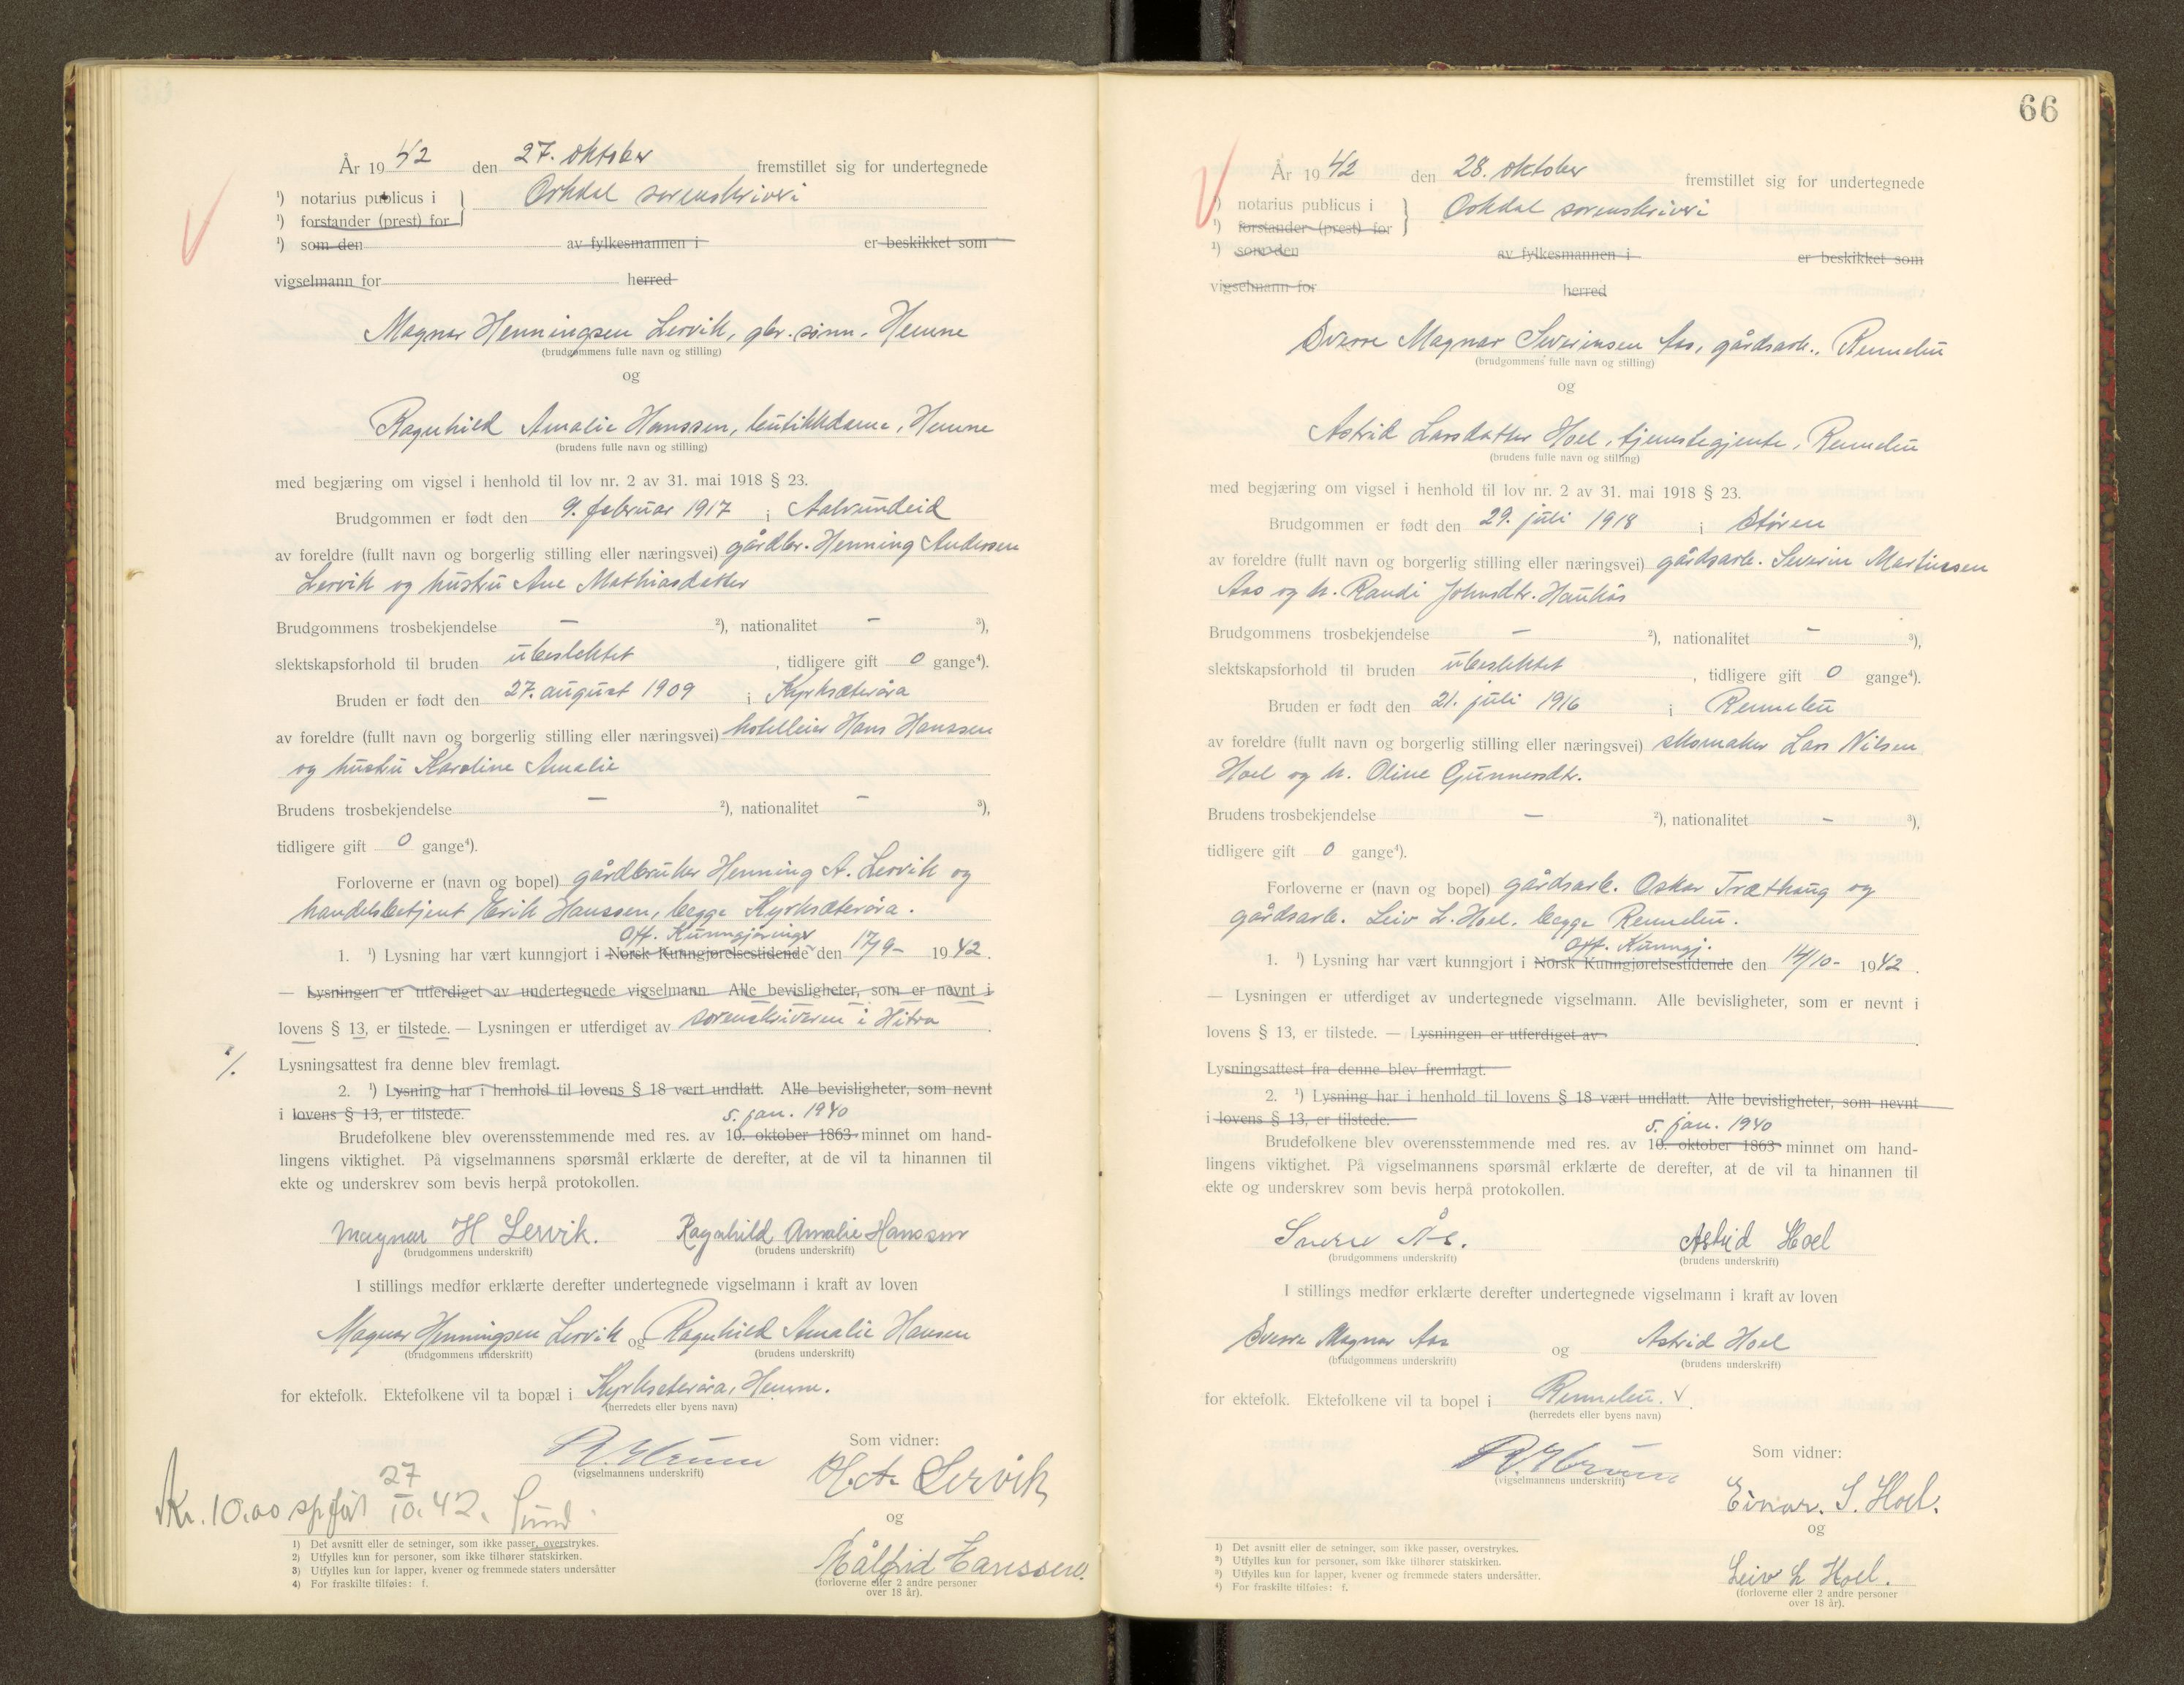 År 1942 den 27. oktober fremstillet sig for undertegnede
¹) notarius publicus i } Orkdal sorenskriveri
¹) forstander (prest) for
¹) som den av fylkesmannen i er beskikket som
vigselmann for herred
Magnar Henningsen Lervik, gbr. sønn, Hemne
(brudgommens fulle navn og stilling)
og
Ragnhild Amalie Hanssen, butikkdame, Hemne
(brudens fulle navn og stilling)
med begjæring om vigsel i henhold til lov nr. 2 av 31. mai 1918 § 23.
Brudgommen er født den 9. februar 1917 i Aalvundeid
av foreldre (fullt navn og borgerlig stilling eller næringsvei) gårdbr. Henning Andersen
Lervik og hustru Ane Mathiasdatter
Brudgommens trosbekjendelse – ²), nationalitet – ³),
slektskapsforhold til bruden ubeslektet, tidligere gift 0 gange⁴).
Bruden er født den 27. august 1909 i Kyrksæterøra
av foreldre (fullt navn og borgerlig stilling eller næringsvei) hotelleier Hans Hanssen
og hustru Karoline Amalie
Brudens trosbekjendelse – ²), nationalitet – ³),
tidligere gift 0 gange⁴).
Forloverne er (navn og bopel) gårdbruker Henning A. Lervik og
handelsbetjent Erik Hanssen, begge Kyrksæterøra.
Off. Kunngjøringer
1. ¹) Lysning har vært kunngjort i Norsk Kunngjørelsestidende den 17/9- 1942.
— Lysningen er utferdiget av undertegnede vigselmann. Alle bevisligheter, som er nevnt i
lovens § 13, er tilstede. — Lysningen er utferdiget av sorenskriveren i Hitra.
./. Lysningsattest fra denne blev fremlagt.
2. ¹) Lysning har i henhold til lovens § 18 vært undlatt. Alle bevisligheter, som nevnt
i lovens § 13, er tilstede.
5. jan. 1940
Brudefolkene blev overensstemmende med res. av 10. oktober 1863 minnet om hand-
lingens viktighet. På vigselmannens spørsmål erklærte de derefter, at de vil ta hinannen til
ekte og underskrev som bevis herpå protokollen.
Magnar H Lervik. Ragnhild Amalie Hanssen
(brudgommens underskrift) (brudens underskrift)
I stillings medfør erklærte derefter undertegnede vigselmann i kraft av loven
Magnar Henningsen Lervik og Ragnhild Amalie Hansen
(brudgommens underskrift) (brudens underskrift)
for ektefolk. Ektefolkene vil ta bopæl i Kyrksæterøra, Hemne.
(herredets eller byens navn)
Som vidner:
(vigselmannens underskrift)
H. A. Lervik
og
Målfrid Hanssen.
(forloverne eller 2 andre personer
over 18 år).
Kr. 10.00 27/10.42.
1) Det avsnitt eller de setninger, som ikke passer, overstrykes.
2) Utfylles kun for personer, som ikke tilhører statskirken.
3) Utfylles kun for lapper, kvener og fremmede staters undersåtter
4) For fraskilte tilføies: f.
66
År 1942 den 28. oktober fremstillet sig for undertegnede
¹) notarius publicus i } Orkdal sorenskriveri
¹) forstander (prest) for
¹) som den av fylkesmannen i er beskikket som
vigselmann for herred
Sverre Magnar Severinsen Aas, gårdsarb., Rennebu
(brudgommens fulle navn og stilling)
og
Astrid Larsdatter Hoel, tjenestegjente, Rennebu
(brudens fulle navn og stilling)
med begjæring om vigsel i henhold til lov nr. 2 av 31. mai 1918 § 23.
Brudgommen er født den 29. juli 1918 i Støren
av foreldre (fullt navn og borgerlig stilling eller næringsvei) gårdsarb. Severin Martinssen
Aas og h. Randi Johnsdtr. Haukås
Brudgommens trosbekjendelse – ²), nationalitet – ³),
slektskapsforhold til bruden ubeslektet, tidligere gift 0 gange⁴).
Bruden er født den 21. juli 1916 i Rennebu
av foreldre (fullt navn og borgerlig stilling eller næringsvei) skomaker Lars Nilsen
Hoel og h. Oline Gunnersdtr.
Brudens trosbekjendelse – ²), nationalitet – ³),
tidligere gift 0 gange⁴).
Forloverne er (navn og bopel) gårdsarb. Oskar Træthaug og
gårdsarb. Leiv L. Hoel, begge Rennebu.
Off. Kunngj.
1. ¹) Lysning har vært kunngjort i Norsk Kunngjørelsestidende den 14/10- 1942.
— Lysningen er utferdiget av undertegnede vigselmann. Alle bevisligheter, som er nevnt i
lovens § 13, er tilstede. — Lysningen er utferdiget av
Lysningsattest fra denne blev fremlagt.
2. ¹) Lysning har i henhold til lovens § 18 vært undlatt. Alle bevisligheter, som nevnt
i lovens § 13, er tilstede.
5. jan. 1940
Brudefolkene blev overensstemmende med res. av 10. oktober 1863 minnet om hand-
lingens viktighet. På vigselmannens spørsmål erklærte de derefter, at de vil ta hinannen til
ekte og underskrev som bevis herpå protokollen.
Sverre Ås. Astrid Hoel
(brudgommens underskrift) (brudens underskrift)
I stillings medfør erklærte derefter undertegnede vigselmann i kraft av loven
Sverre Magnar Aas og Astrid Hoel
(brudgommens underskrift) (brudens underskrift)
for ektefolk. Ektefolkene vil ta bopel i Rennebu.
(herredets eller byens navn)
Som vidner:
(vigselmannens underskrift)
Einar. S. Hoel.
og
Leiv L Hoel.
(forloverne eller 2 andre personer
over 18 år).
¹) Det avsnitt eller de setninger, som ikke passer, overstrykes.
²) Utfylles kun for personer, som ikke tilhører statskirken.
³) Utfylles kun for lapper, kvener og fremmede staters undersåtter.
⁴) For fraskilte tilføies: f.